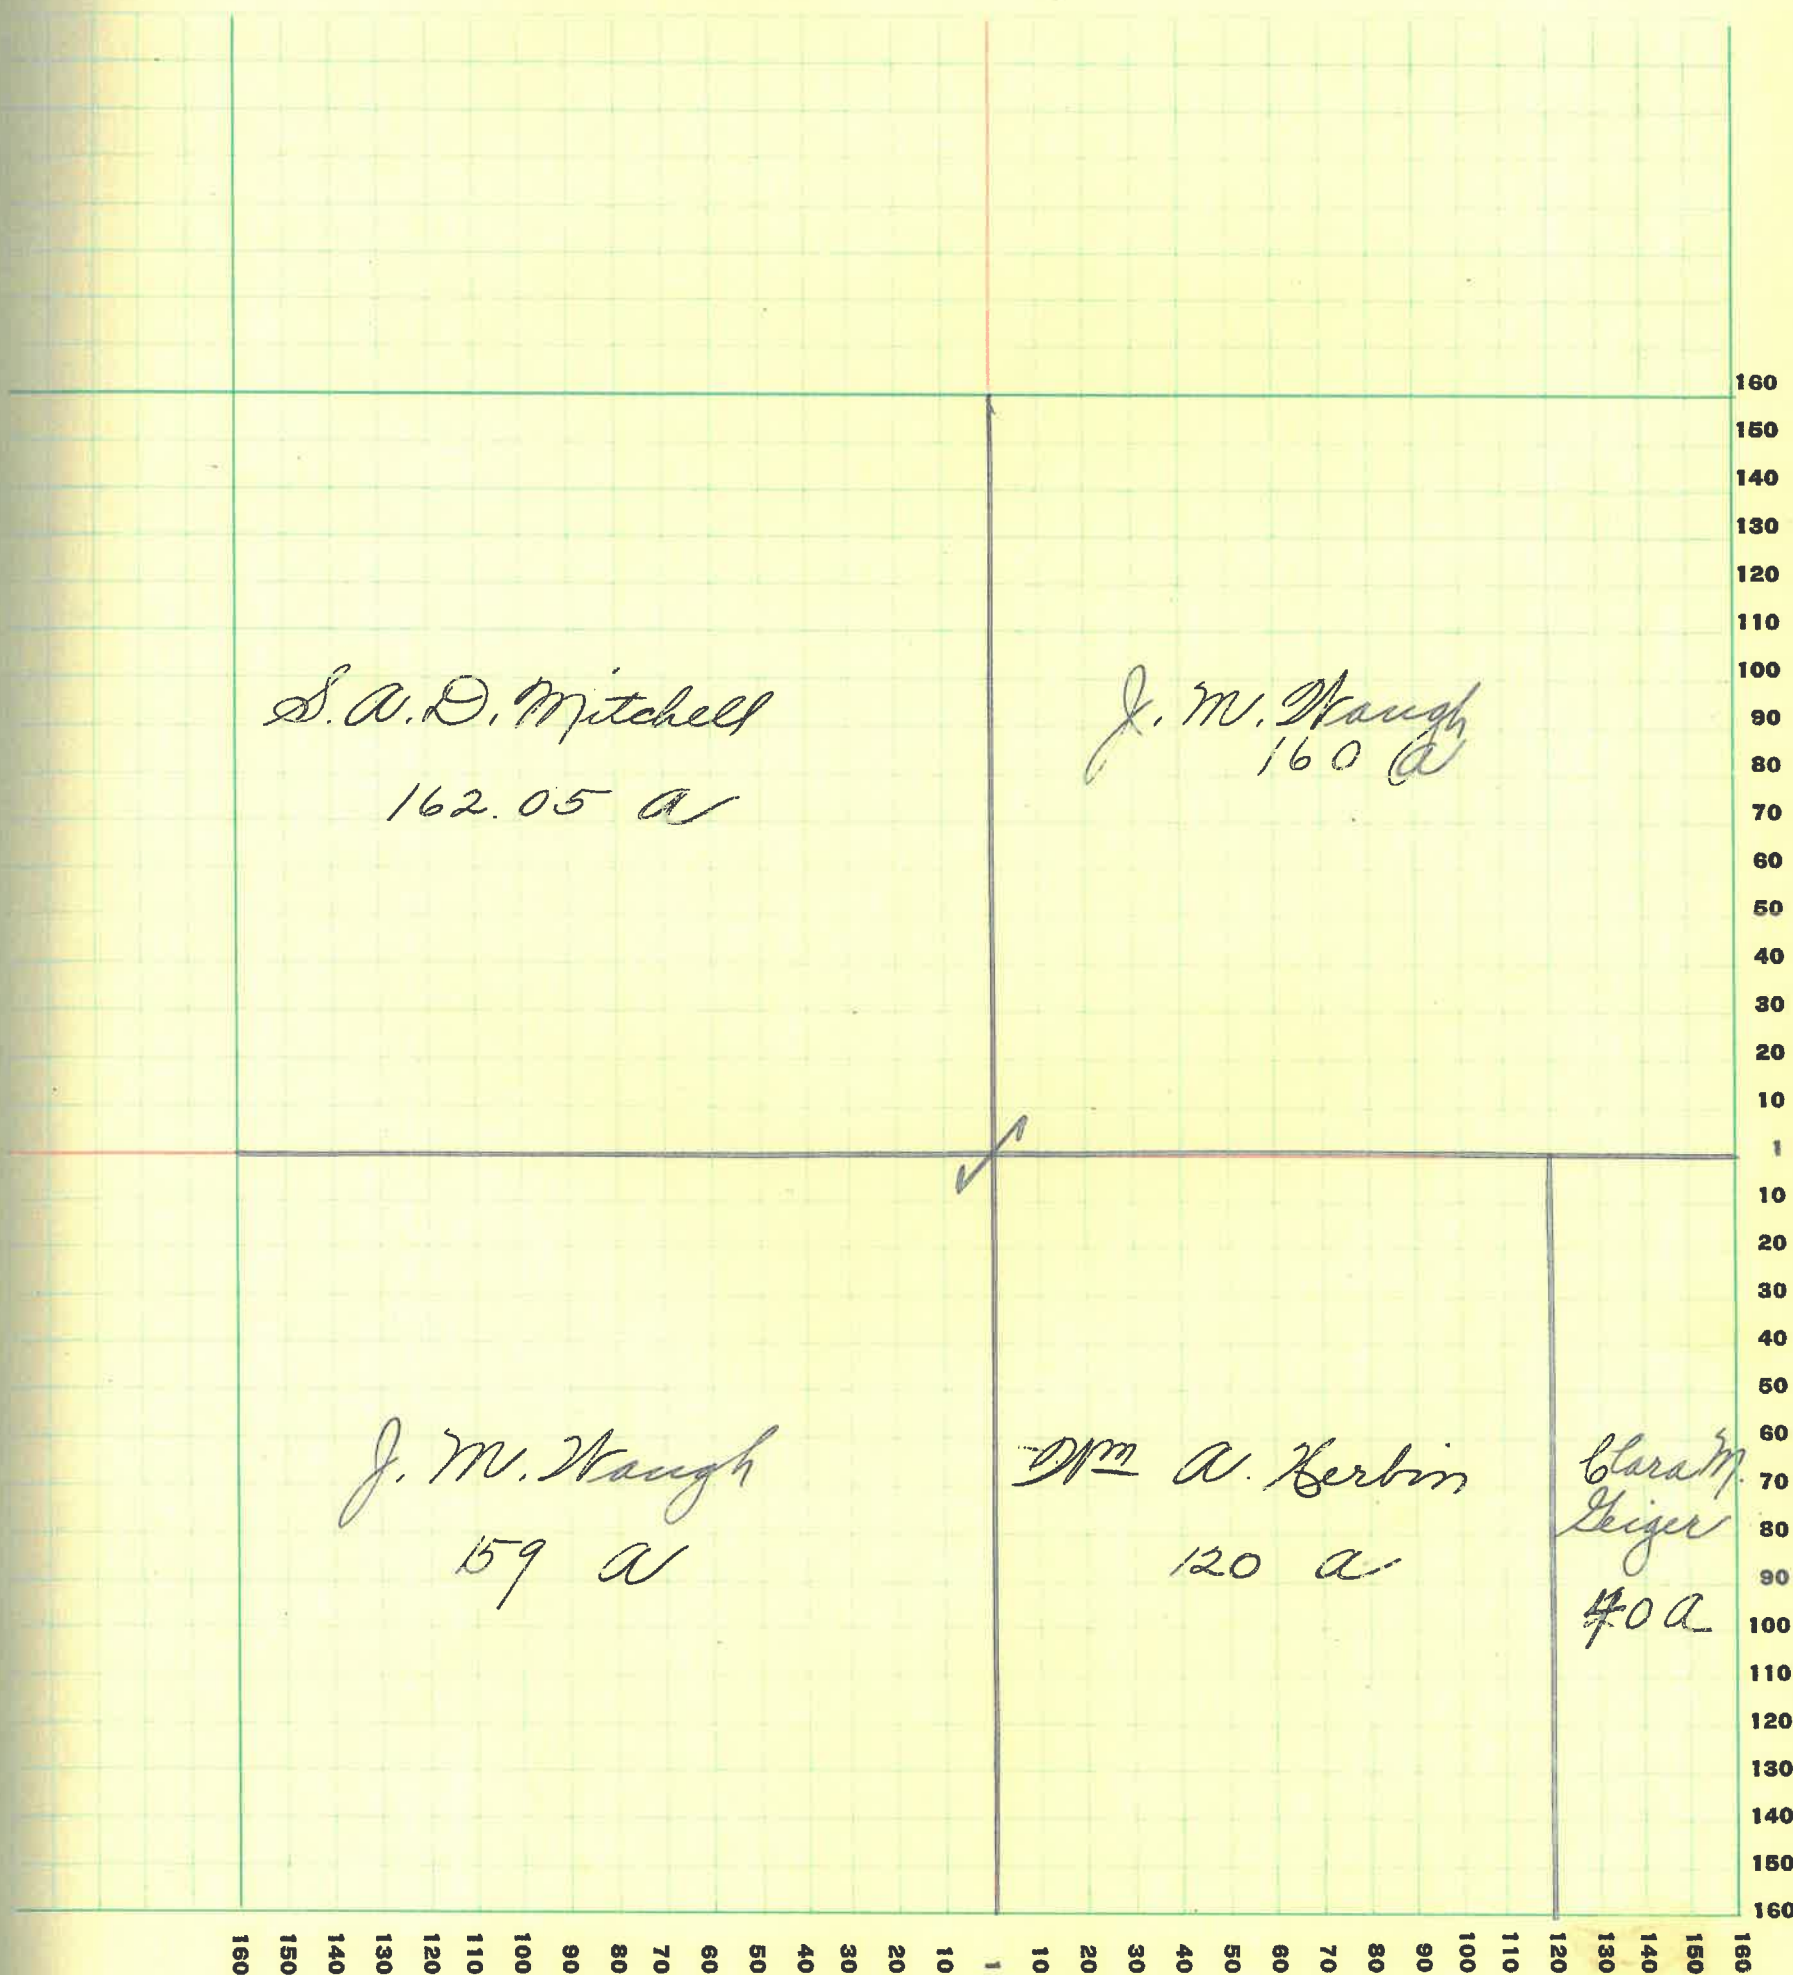 S. A. D. Mitchell
162.05 a
J. M. Waugh
160 a
J. M. Waugh
159 a
Wm A. Herbin
120 a
Clara M.
Geiger
40 a
160
150
140
130
120
110
100
90
80
70
60
50
40
30
20
10
1
10
20
30
40
50
60
70
80
90
100
110
120
130
140
150
160
160 150 140 130 120 110 100 90 80 70 60 50 40 30 20 10 1 10 20 30 40 50 60 70 80 90 100 110 120 130 140 150 160